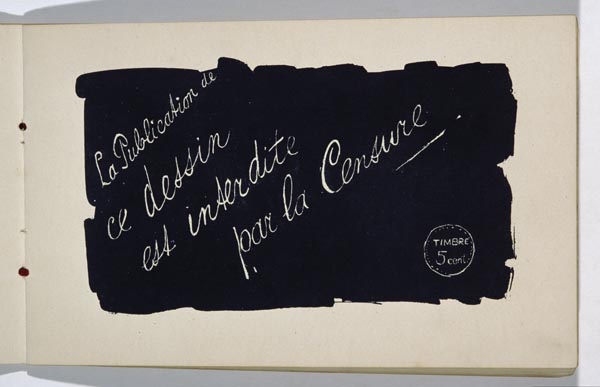 La Publication de
ce dessin
est interdite
par la Censure
TIMBRE
5 cent.